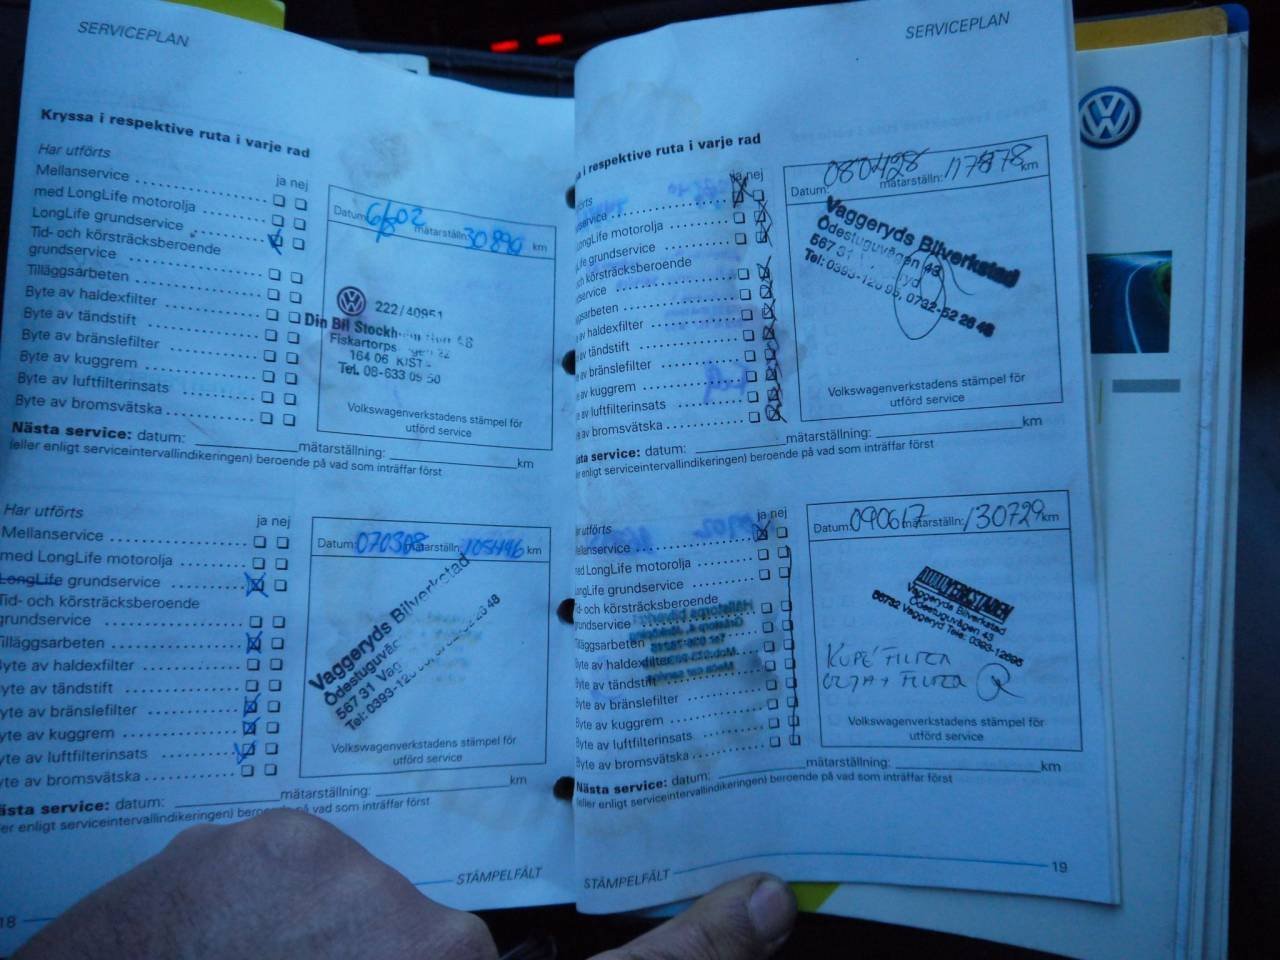 SERVICEPLAN
Kryssa i respektive ruta i varje rad
Har utförts
ja nej
Mellanservice
med LongLife motorolja
LongLife grundservice
Tid- och körsträcksberoende
grundservice
Tilläggsarbeten
Byte av haldexfilter
Byte av tändstift
Byte av bränslefilter
Byte av kuggrem
Byte av luftfilterinsats
Byte av bromsvätska
Datum: mätarställn: 30890 km
222/40951
Din Bil Stockh
Fiskartorps
164 06 KIST
Tel. 08-633 05 50
Volkswagenverkstadens stämpel för
utförd service
Nästa service: datum: mätarställning: km
(eller enligt serviceintervallindikeringen) beroende på vad som inträffar först
Har utförts
ja nej
Mellanservice
med LongLife motorolja
LongLife grundservice
Tid- och körsträcksberoende
grundservice
Tilläggsarbeten
Byte av haldexfilter
Byte av tändstift
yte av bränslefilter
yte av kuggrem
yte av luftfilterinsats
yte av bromsvätska
Datum: mätarställn: km
Vaggeryds Bilverkstad
Ödestuguväg
567 31 Vag
Tel: 0393-12
Volkswagenverkstadens stämpel för
utförd service
ästa service: datum: mätarställning: km
ler enligt serviceintervallindikeringen) beroende på vad som inträffar först
18
STÄMPELFÄLT
SERVICEPLAN
i respektive ruta i varje rad
förts
ja nej
service
LongLife motorolja
Life grundservice
och körsträcksberoende
service
gsarbeten
av haldexfilter
av tändstift
av bränslefilter
av kuggrem
av luftfilterinsats
av bromsvätska
Datum: 080428 mätarställn: km
Vaggeryds Bilverkstad
Ödestuguvägen 43
567 31
Tel: 0393-126 95, 0732-52 26 48
Volkswagenverkstadens stämpel för
utförd service
ästa service: datum: mätarställning: km
er enligt serviceintervallindikeringen) beroende på vad som inträffar först
Har utförts
ja nej
Mellanservice
med LongLife motorolja
LongLife grundservice
Tid- och körsträcksberoende
grundservice
Tilläggsarbeten
Byte av haldexfilter
Byte av tändstift
Byte av bränslefilter
Byte av kuggrem
Byte av luftfilterinsats
Byte av bromsvätska
Datum: 090617 mätarställn: 130729 km
VERKSTADEN
Vaggeryds Bilverkstad
Ödestuguvägen 43
56732 Vaggeryd Tele: 0393-12695
KUPÉFILTER
OLJA + FILTER
Volkswagenverkstadens stämpel för
utförd service
Nästa service: datum: mätarställning: km
(eller enligt serviceintervallindikeringen) beroende på vad som inträffar först
STÄMPELFÄLT
19